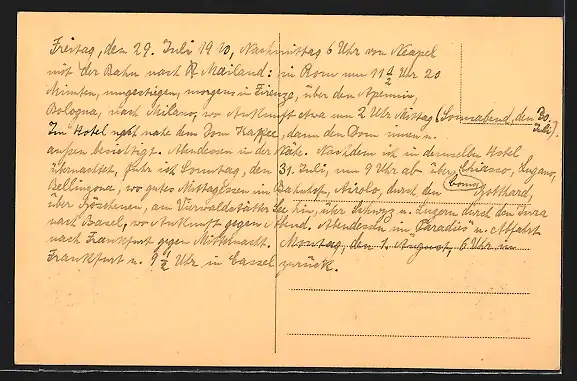 Freitag, den 29. Juli 1910, Nachmittag 6 Uhr von Neapel
mit der Bahn nach Mailand: in Rom um 11 Uhr 20
Minuten, umgestiegen, morgens in Firenze, über den Apennin,
Bologna, nach Milano, wo Ankunft etwa um 2 Uhr Mittag (Sonnabend, den 30. Juli).
Im Hotel nahe dem Dom Kaffee, dann den Dom innen u.
aussen besichtigt. Abendessen in der Nähe. Nachdem ich in demselben Hotel
übernachtet, fuhr ich Sonntag, den 31. Juli, um 9 Uhr ab über Chiasso, Como, Lugano,
Bellinzona, wo gutes Mittagessen im Bahnhof, Airolo, durch den Gotthard,
über Göschenen, am Vierwaldstätter See hin, über Schwyz u. Luzern durch den Jura
nach Basel, wo Ankunft gegen Abend. Abendessen im "Paradies" u. Abfahrt
nach Frankfurt gegen Mitternacht. Montag, den 1. August, 6 Uhr in
Frankfurt u. 9 1/2 Uhr in Cassel zurück.